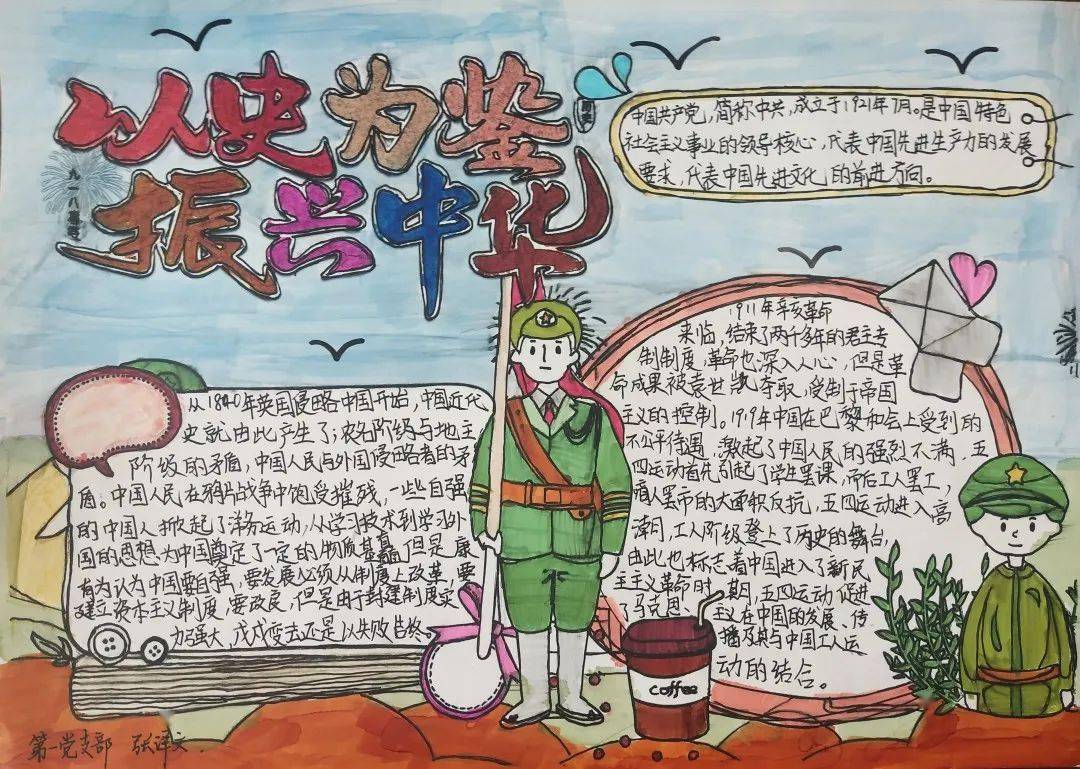 以史为鉴
振兴中华
九一八事变
中国共产党,简称中共,成立于1921年7月。是中国特色
社会主义事业的领导核心,代表中国先进生产力的发展
要求,代表中国先进文化的前进方向。
从1840年英国侵略中国开始,中国近代
史就由此产生了;农名阶级与地主
阶级的矛盾,中国人民与外国侵略者的矛
盾。中国人民在鸦片战争中饱受摧残,一些自强
的中国人掀起了洋务运动,从学习技术到学习外
国的思想为中国奠定了一定的物质基础,但是康
有为认为中国要自强,要发展必须从制度上改革,要
建立资本主义制度,要改良,但是由于封建制度实
力强大,戊戌变法还是以失败告终。
1911年辛亥革命
来临,结束了两千多年的君主专
制制度,革命也深入人心,但是革
命成果被袁世凯夺取,受制于帝国
主义的控制。1919年中国在巴黎和会上受到的
不公平待遇,激起了中国人民的强烈不满,五
四运动首先引起了学生罢课,而后工人罢工,
商人罢市的大面积反抗,五四运动进入高
潮同,工人阶级登上了历史的舞台,
由此也标志着中国进入了新民
主主义革命时期,五四运动促进
马克思主义在中国的发展、传
播及其与中国工人运
动的结合。
coffee
第一党支部 张译文